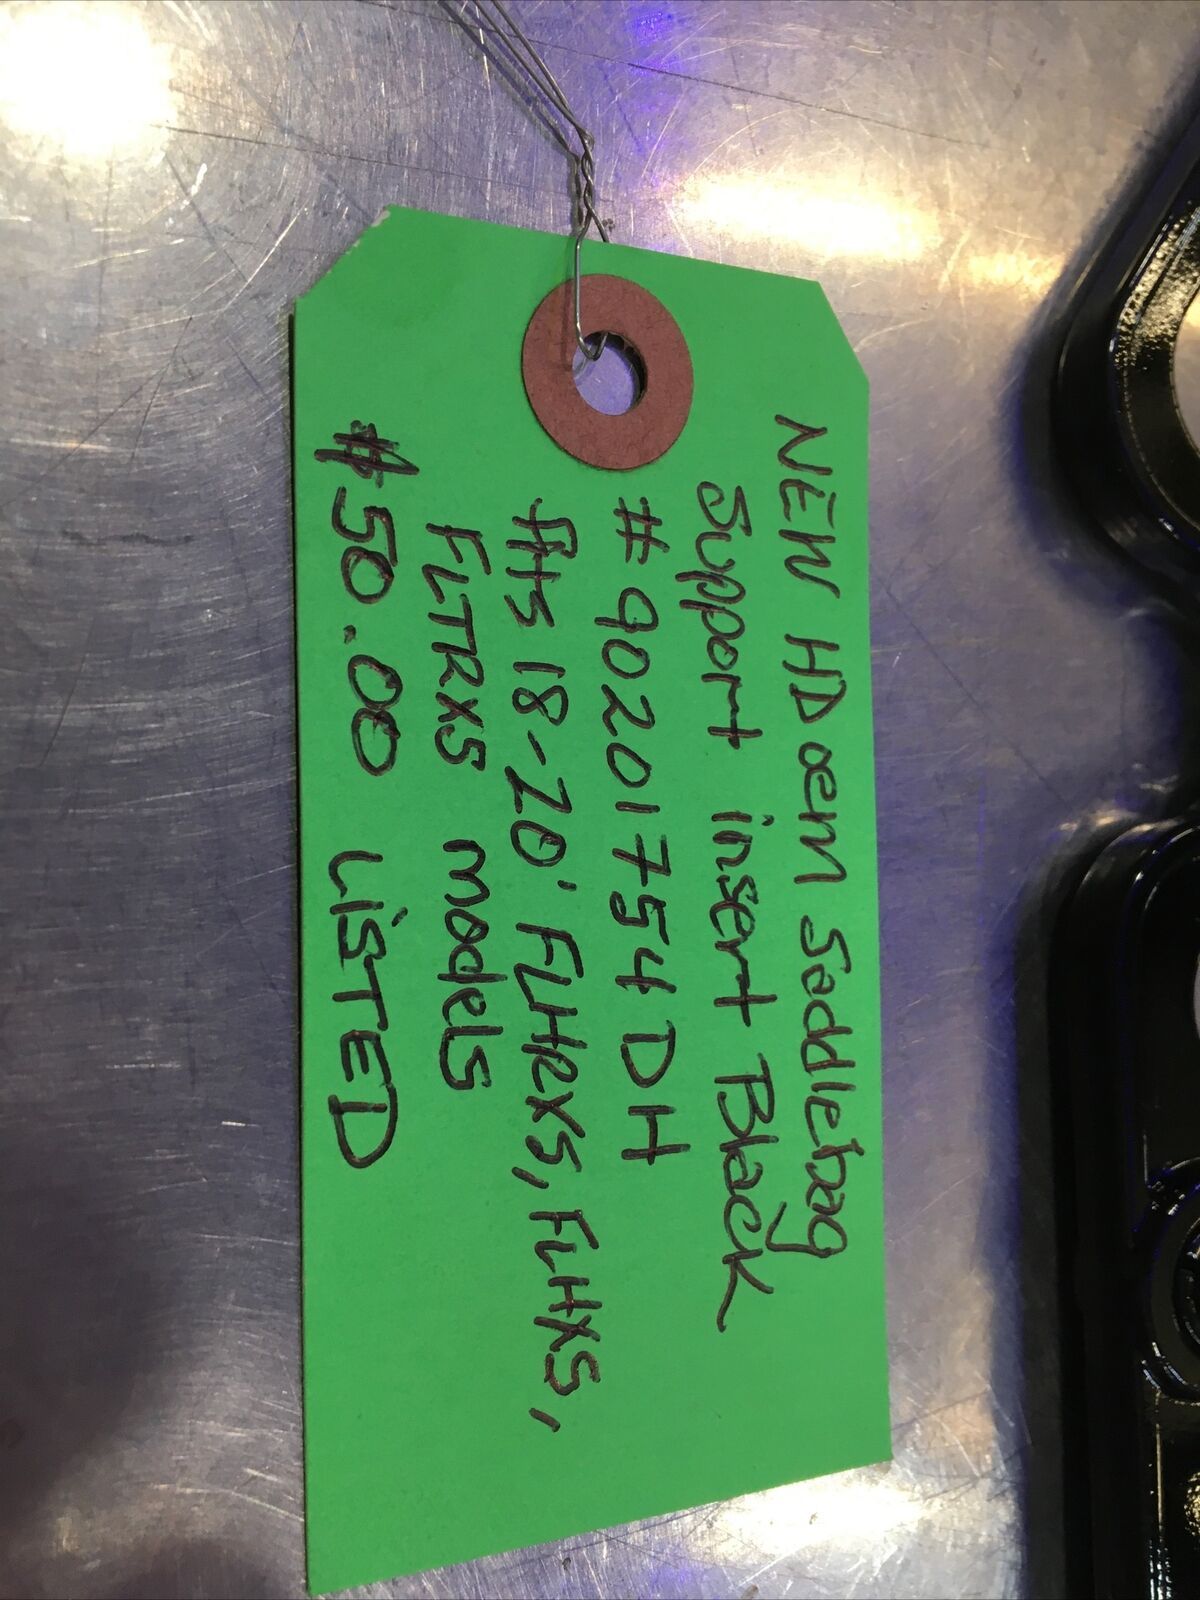 NEW HD oem Saddlebag
Support insert Black
# 90201754DH
fits 18-20' FLHRXS, FLHXS,
FLTRXS models
$50.00 LiSTED